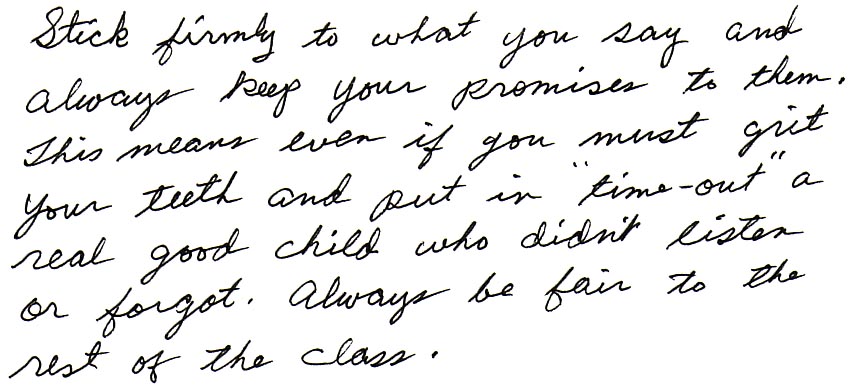 Stick firmly to what you say and
always keep your promises to them.
This means even if you must grit
your teeth and put in "time-out" a
real good child who didn't listen
or forgot. Always be fair to the
rest of the class.